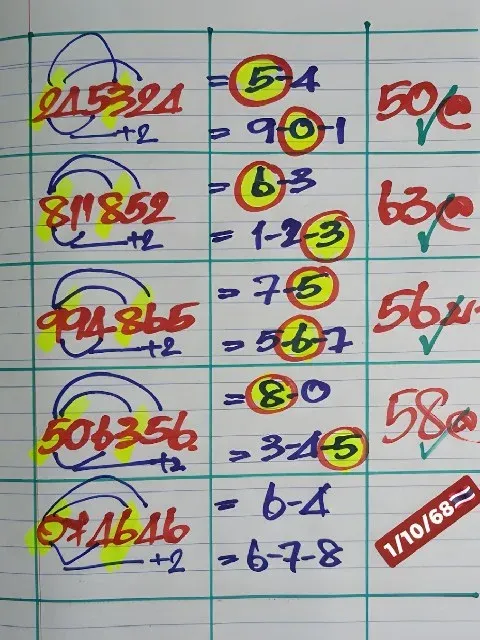 245324 = 5-4 50@
+2 = 9-0-1
811852 = 6-3 63@
+2 = 1-2-3
994865 = 7-5 56บ.
+2 = 5-6-7
506356. = 8-0 58@
+2 = 3-4-5
074646 = 6-4
+2 = 6-7-8
1/10/68